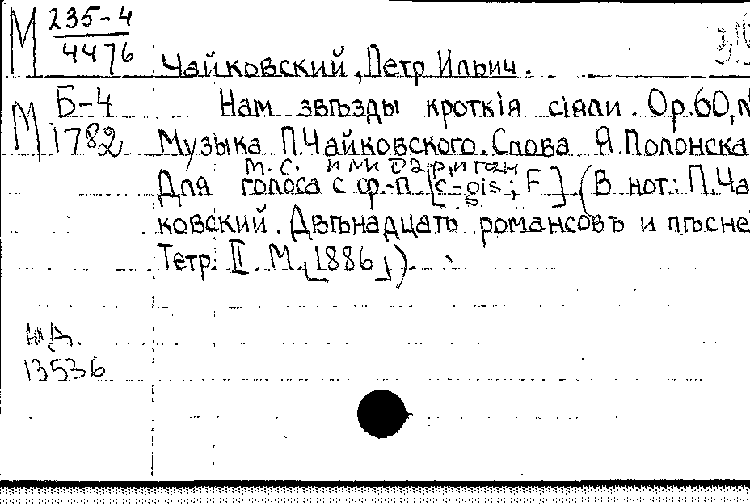 М 235-4
4476
Чайковский, Петр Ильич.
М Б-4
1782
Нам звѣзды кроткія сіяли. Ор.60,
Музыка П.Чайковского. Слова Я.Полонска
м.с. или баритон
Для голоса с ф.-п. [c-gis; F]. (В нот: П.Ча
ковский. Двѣнадцать романсовъ и пѣсне
Тетр. II. М. [1886].).
13536